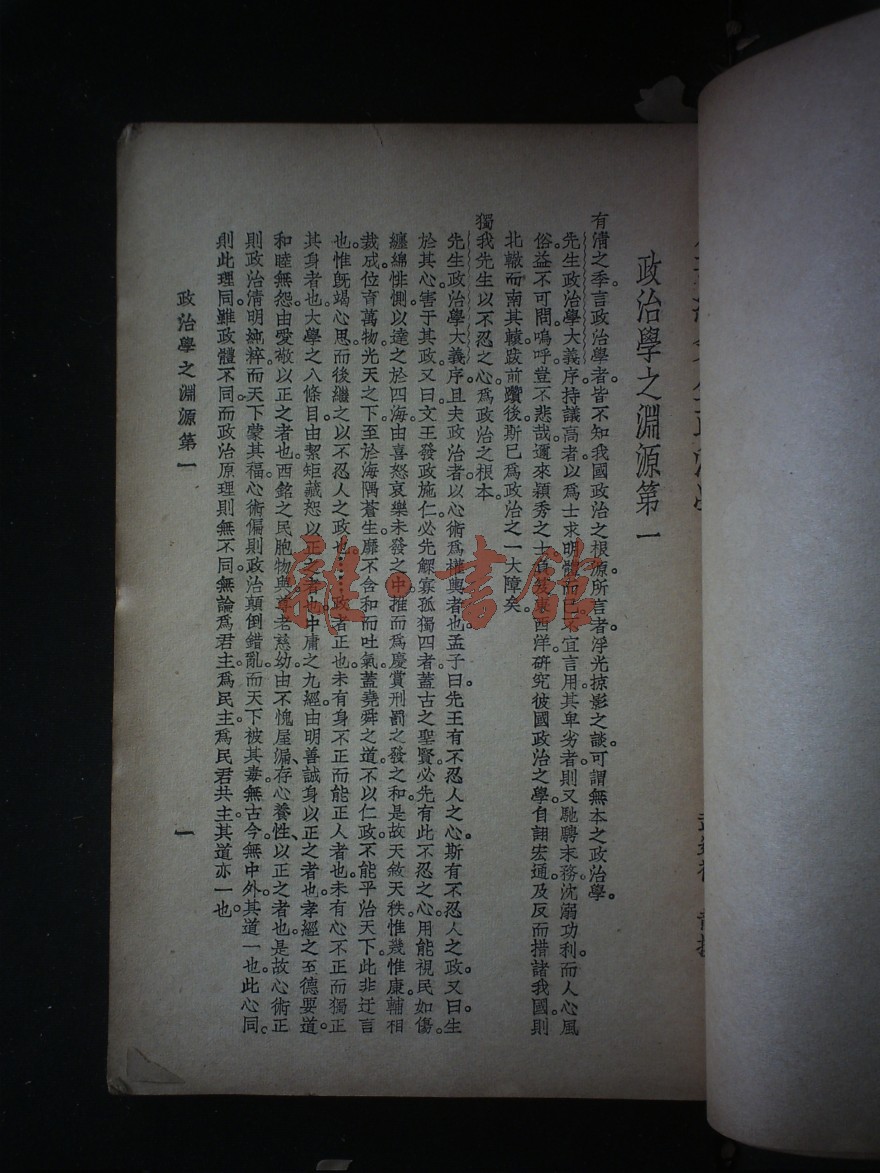 政治學之淵源第一
有清之季言政治學者皆不知我國政治之根源所言者浮光掠影之談。可謂無本之政治學。
先生政治學大義序持議高者以爲士求明體而已不宜言用其卑劣者則又馳騁末務沈溺功利而人心風
俗益不可問。嗚呼豈不悲哉邇來穎秀之士負笈東西洋研究彼國政治之學自詡宏通及反而措諸我國則
北轍而南其轅跋前躓後。斯已爲政治之一大障矣。
獨我先生以不忍之心爲政治之根本。
先生政治學大義序。且夫政治者以心術爲權輿者也孟子曰先王有不忍人之心。斯有不忍人之政又曰生
於其心害于其政又曰文王發政施仁。必先鰥寡孤獨四者蓋古之聖賢必先有此不忍之心。用能視民如傷。
纏綿悱惻以達之於四海由喜怒哀樂未發之中。推而爲慶賞刑罰之發之和是故天敘天秩惟幾惟康輔相
裁成位育萬物光天之下至於海隅蒼生靡不含和而吐氣蓋堯舜之道不以仁政不能平治天下。此非迂言
也。惟旣竭心思而後繼之以不忍人之政也……政者正也。未有身不正而能正人者也未有心不正而獨正
其身者也大學之八條目由絜矩藏恕以正之者也中庸之九經由明善誠身以正之者也。孝經之至德要道。
和睦無怨由愛敬以正之者也。西銘之民胞物與尊老慈幼由不愧屋漏、存心養性、以正之者也是故心術正
則政治清明純粹而天下蒙其福。心術偏則政治顛倒錯亂而天下被其毒。無古今無中外其道一也此心同。
則此理同。雖政體不同而政治原理則無不同。無論爲君主。爲民主。爲民君共主。其道亦一也。
政治學之淵源第一
一
雜·書館